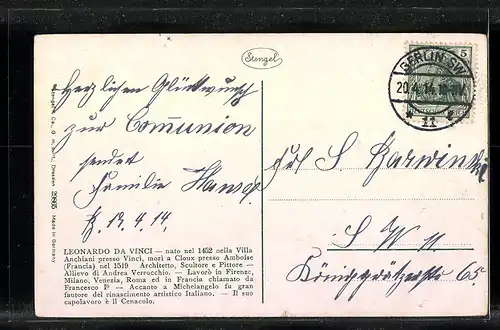 Stengel
5
BERLIN SW
20.4.14.
* 11
Herzlichen Glückwunsch
zur Communion
sendet
Familie
19.4.14.
Frl S.
S W 11
Königgrätzerstr 65.
Stengel & Co., G. m. b. H., Dresden 29805 Made in Germany
LEONARDO DA VINCI — nato nel 1452 nella Villa
Anchiani presso Vinci, morì a Cloux presso Amboise
(Francia) nel 1519 — Architetto, Scultore e Pittore —
Allievo di Andrea Verrocchio. — Lavorò in Firenze,
Milano, Venezia, Roma ed in Francia chiamato da
Francesco Iº — Accanto a Michelangelo fu gran
fautore del rinascimento artistico Italiano. — Il suo
capolavoro è il Cenacolo.